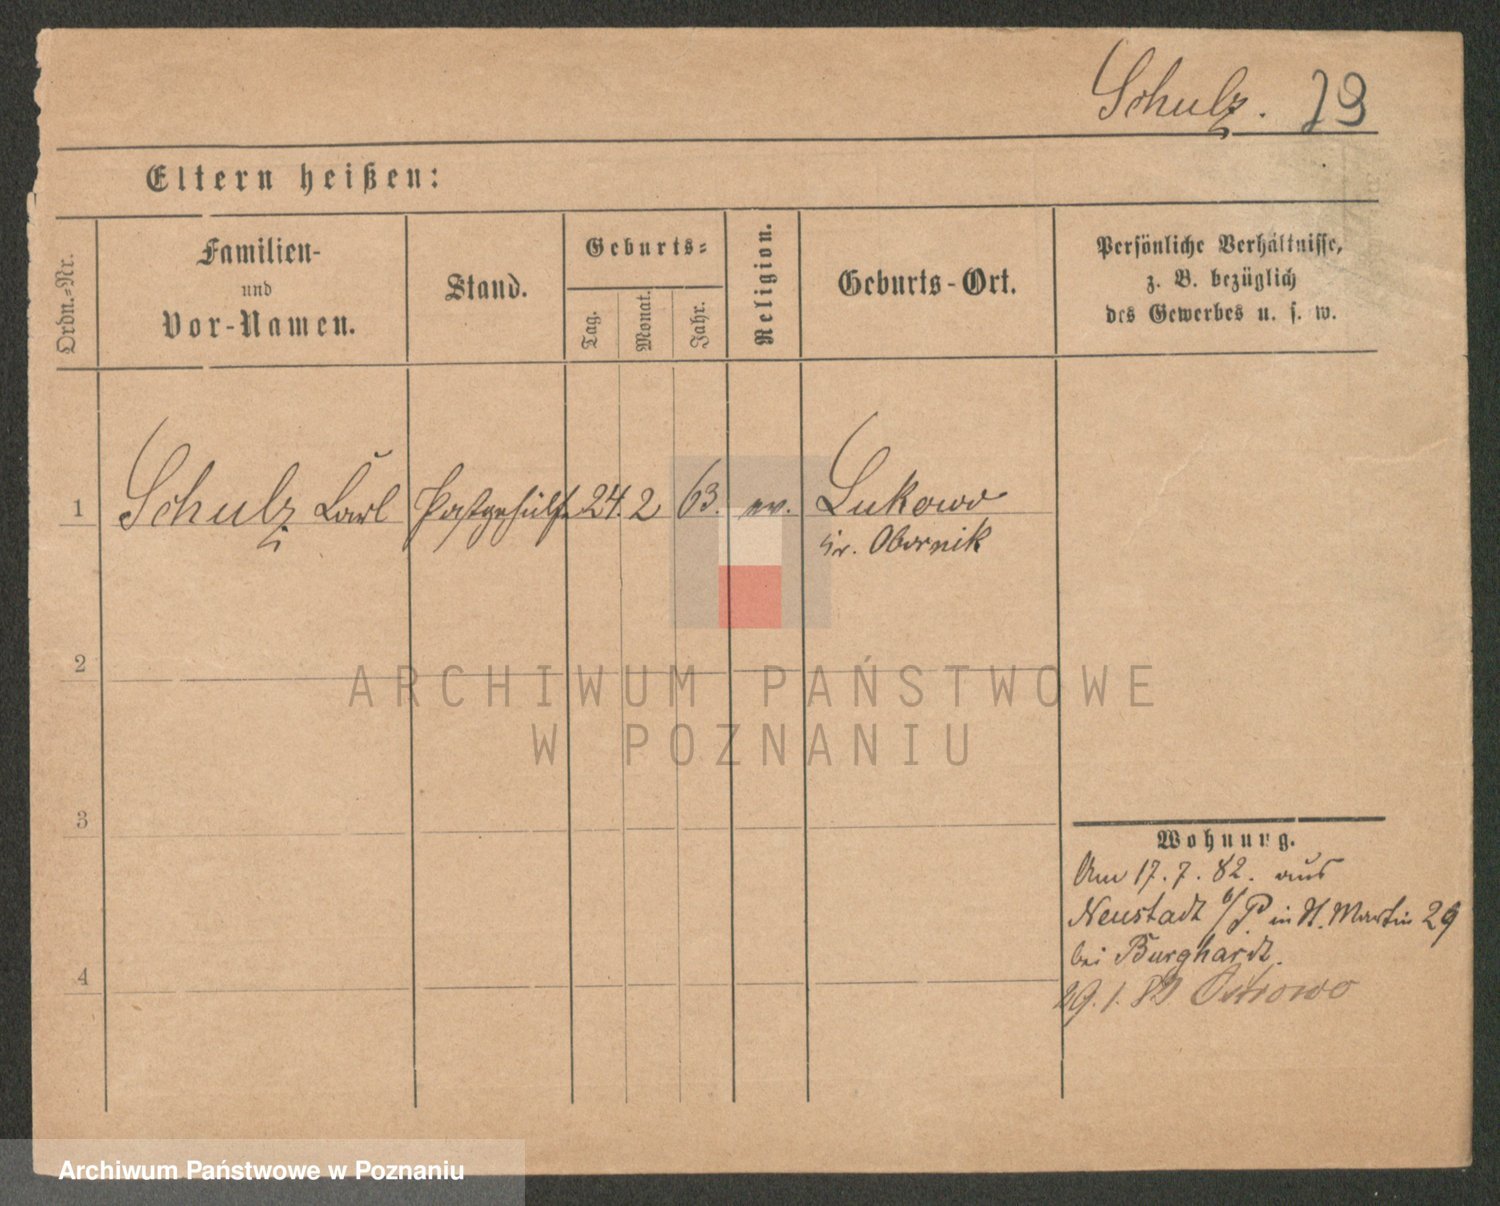 Schulz. 79
Eltern heißen:
Ordn.-Nr.
Familien-
und
Vor-Namen.
Stand.
Geburts-
Tag.
Monat.
Jahr.
Religion.
Geburts-Ort.
Persönliche Verhältnisse,
z. B. bezüglich
des Gewerbes u. s. w.
1 Schulz Carl Postgehülfe 24. 2 63. ev. Lukowo
Kr. Obornik
2
ARCHIWUM PAŃSTWOWE
W POZNANIU
3
Wohnung.
Am 17. 7. 82. aus
Neustadt b/P in St. Martin 29
bei Burghardt.
4
29. 1. Ostrowo
Archiwum Państwowe w Poznaniu